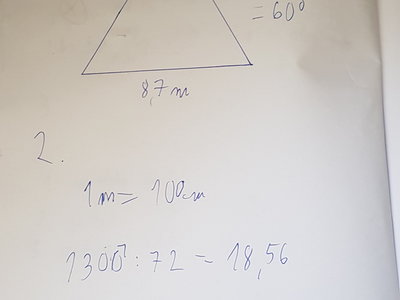 = 60°
8,7 m
2.
1 m = 100 cm
1300 : 72 = 18,56